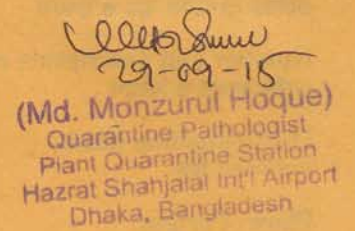 29-09-15
(Md. Monzurul Hoque)
Quarantine Pathologist
Plant Quarantine Station
Hazrat Shahjalal Int'l Airport
Dhaka, Bangladesh